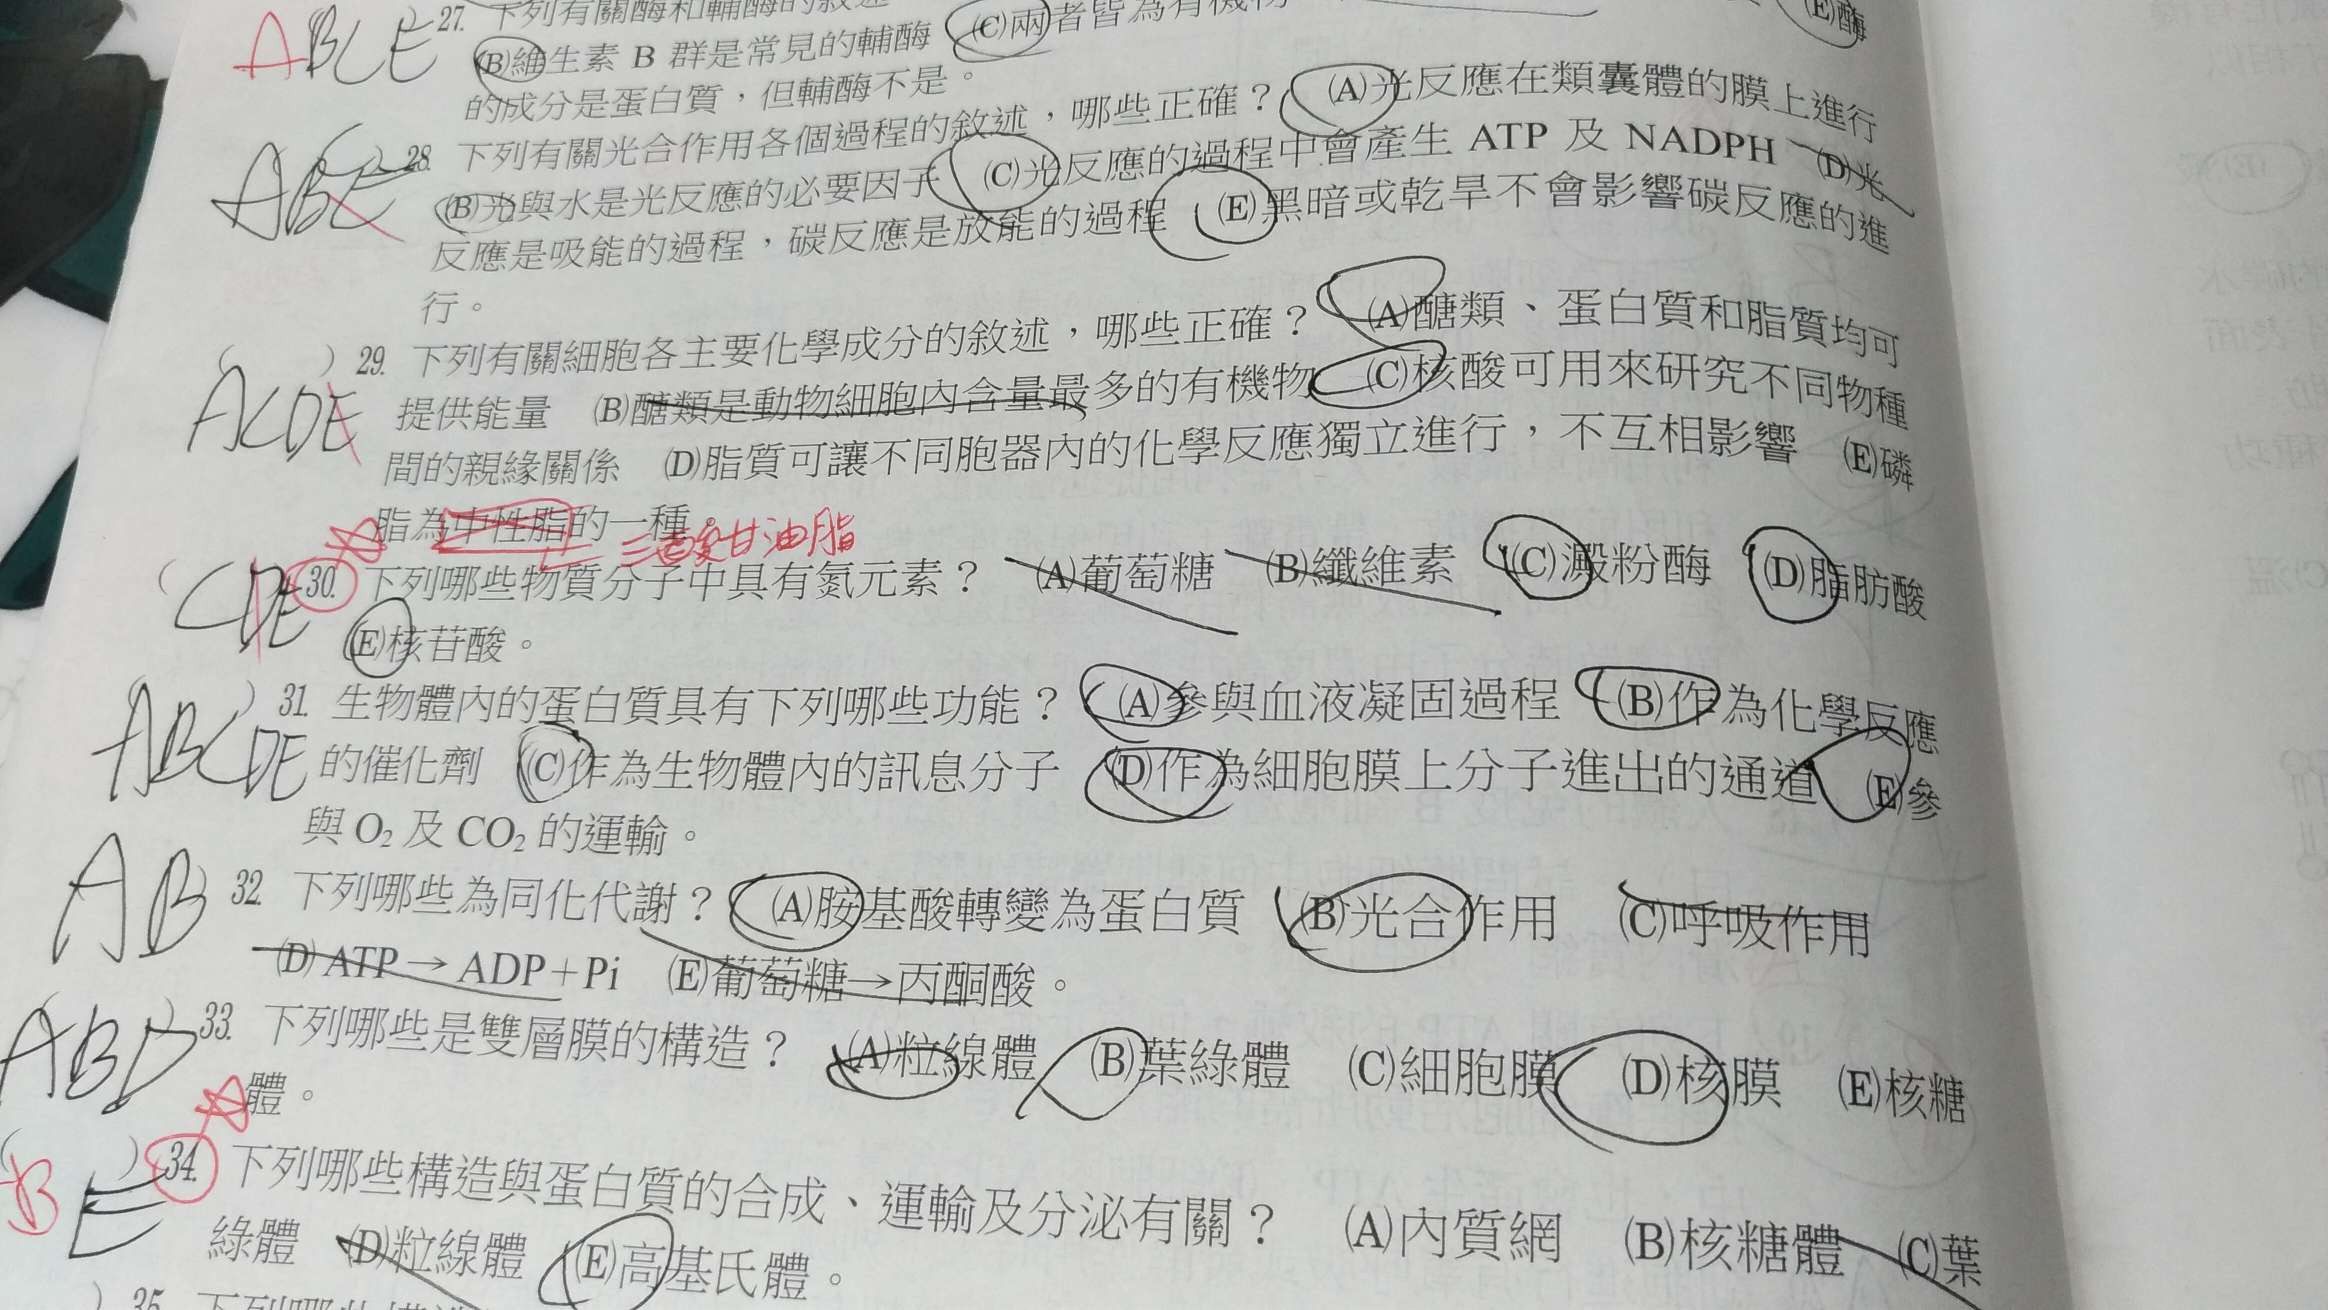 ABCE 27. 下列有關酶和輔酶的敘述
(B)維生素 B 群是常見的輔酶 (C)兩者皆為有機物 (E)酶
的成分是蛋白質，但輔酶不是。
ABC 28. 下列有關光合作用各個過程的敘述，哪些正確？ (A)光反應在類囊體的膜上進行
(B)光與水是光反應的必要因子 (C)光反應的過程中會產生 ATP 及 NADPH (D)光
反應是吸能的過程，碳反應是放能的過程 (E)黑暗或乾旱不會影響碳反應的進
行。
ACDE ( ) 29. 下列有關細胞各主要化學成分的敘述，哪些正確？ (A)醣類、蛋白質和脂質均可
提供能量 (B)醣類是動物細胞內含量最多的有機物 (C)核酸可用來研究不同物種
間的親緣關係 (D)脂質可讓不同胞器內的化學反應獨立進行，不互相影響 (E)磷
脂為中性脂的一種。
三酸甘油脂
CDE ( 30. 下列哪些物質分子中具有氮元素？ (A)葡萄糖 (B)纖維素 (C)澱粉酶 (D)脂肪酸
(E)核苷酸。
ABCDE ) 31. 生物體內的蛋白質具有下列哪些功能？ (A)參與血液凝固過程 (B)作為化學反應
的催化劑 (C)作為生物體內的訊息分子 (D)作為細胞膜上分子進出的通道 (E)參
與 O₂ 及 CO₂ 的運輸。
AB ) 32. 下列哪些為同化代謝？ (A)胺基酸轉變為蛋白質 (B)光合作用 (C)呼吸作用
(D) ATP→ADP+Pi (E)葡萄糖→丙酮酸。
ABD ) 33. 下列哪些是雙層膜的構造？ (A)粒線體 (B)葉綠體 (C)細胞膜 (D)核膜 (E)核糖
體。
B E ( ) 34. 下列哪些構造與蛋白質的合成、運輸及分泌有關？ (A)內質網 (B)核糖體 (C)葉
綠體 (D)粒線體 (E)高基氏體。
) 35. 下列哪些構造